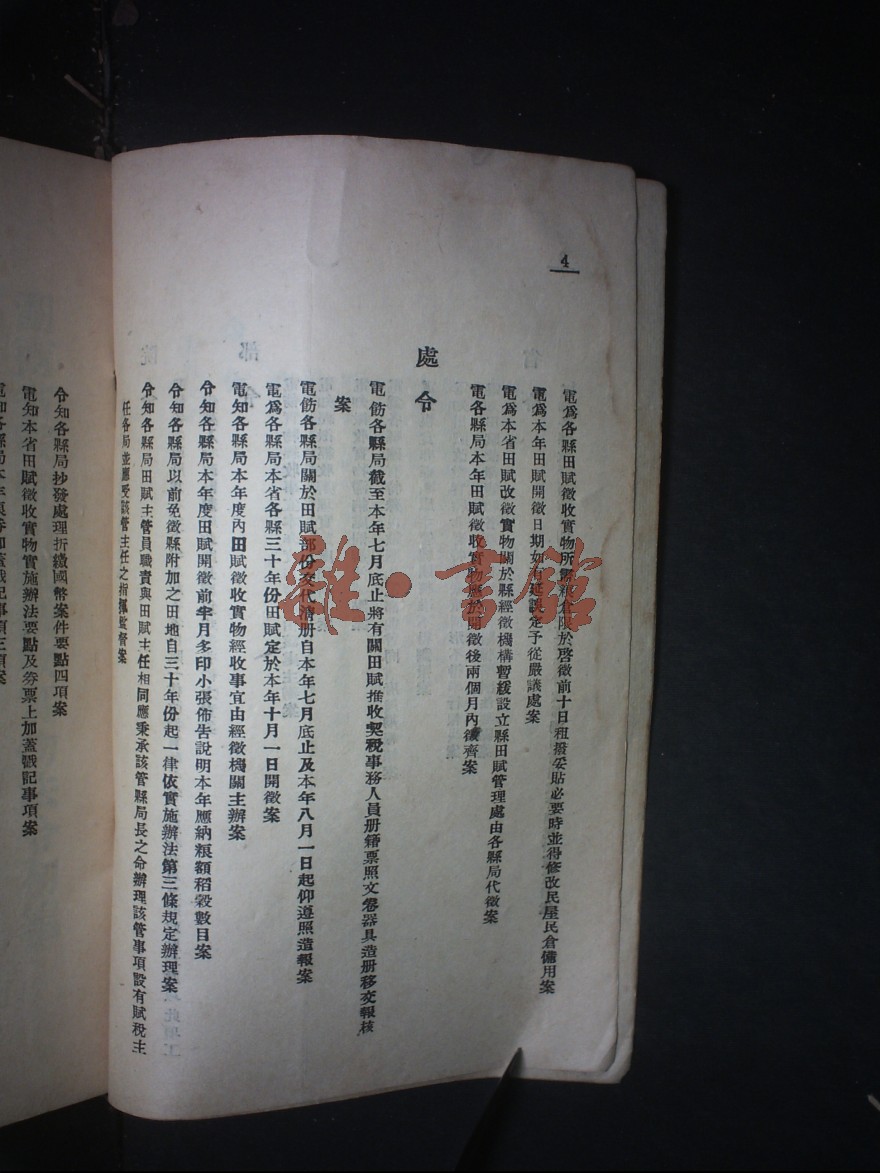 4
電爲各縣田賦徵收實物所需經倉限於啓徵前十日租撥妥貼必要時並得修改民屋民倉備用案
電爲本年田賦開徵日期如有延誤定予從嚴議處案
電爲本省田賦改徵實物關於縣經徵機構暫緩設立縣田賦管理處由各縣局代徵案
電各縣局本年田賦徵收實物應於開徵後兩個月內徵齊案
處令
電飭各縣局截至本年七月底止將有關田賦推收契稅事務人員册籍票照文卷器具造册移交報核
案
電飭各縣局關於田賦部份交代淸册自本年七月底止及本年八月一日起仰遵照造報案
電爲各縣局本省各縣三十年份田賦定於本年十月一日開徵案
電知各縣局本年度內田賦徵收實物經收事宜由經徵機關主辦案
令知各縣局本年度田賦開徵前半月多印小張佈告說明本年應納粮額稻穀數目案
令知各縣局以前免徵縣附加之田地自三十年份起一律依實施辦法第三條規定辦理案
令知各縣局田賦主管員職責與田賦主任相同應秉承該管縣局長之命辦理該管事項設有賦稅主
任各局並應受該管主任之指揮監督案
令知各縣局抄發處理折繳國幣案件要點四項案
電知本省田賦徵收實物實施辦法要點及券票上加蓋戳記事項案
雜·書館